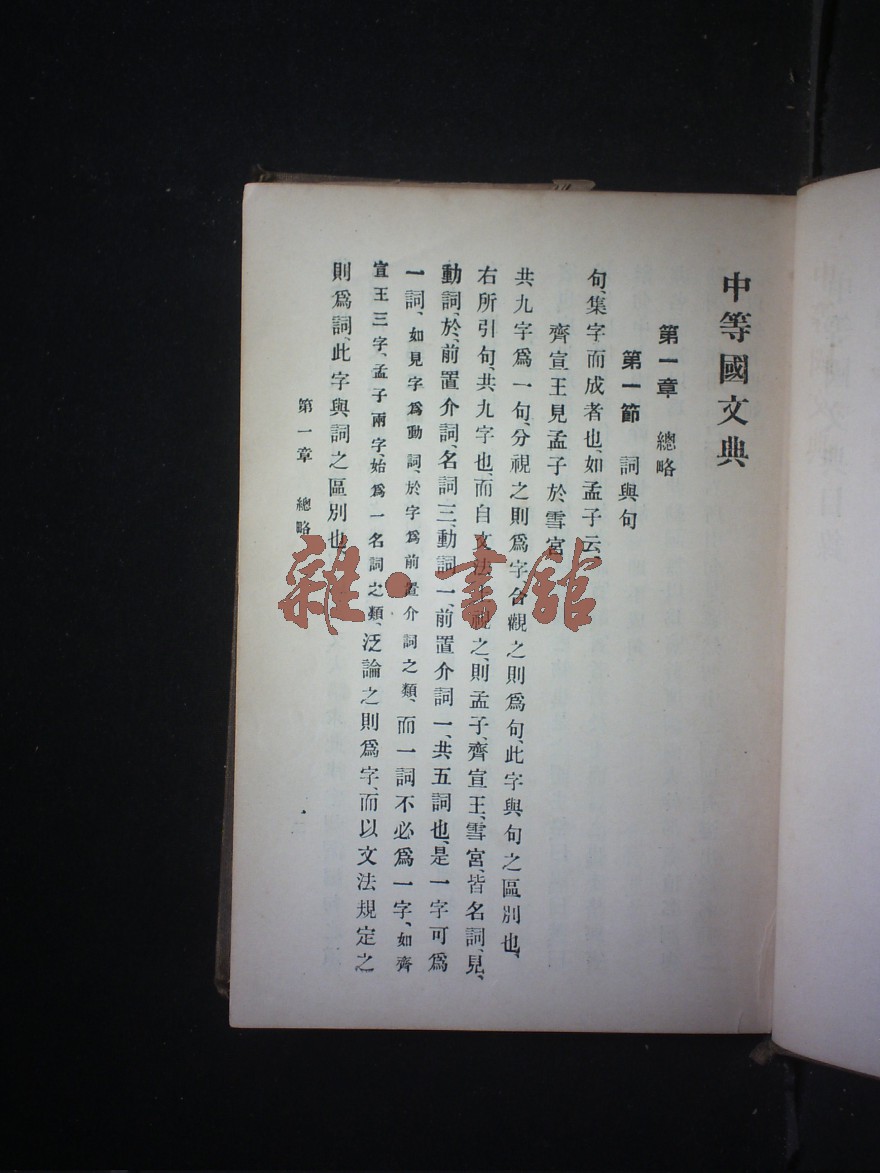 中等國文典
第一章 總略
第一節 詞與句
句、集字而成者也、如孟子云、
齊宣王見孟子於雪宮
共九字爲一句、分視之則爲字、合觀之則爲句、此字與句之區別也、
右所引句、共九字也、而自文法上視之、則孟子、齊宣王、雪宮、皆名詞、見、
動詞、於、前置介詞、名詞三、動詞一、前置介詞一、共五詞也、是一字可爲
一詞、如見字爲動詞、於字爲前置介詞之類、而一詞不必爲一字、如齊
宣王三字、孟子兩字、始爲一名詞之類、泛論之則爲字、而以文法規定之
則爲詞、此字與詞之區別也
第一章 總略
雜·書館